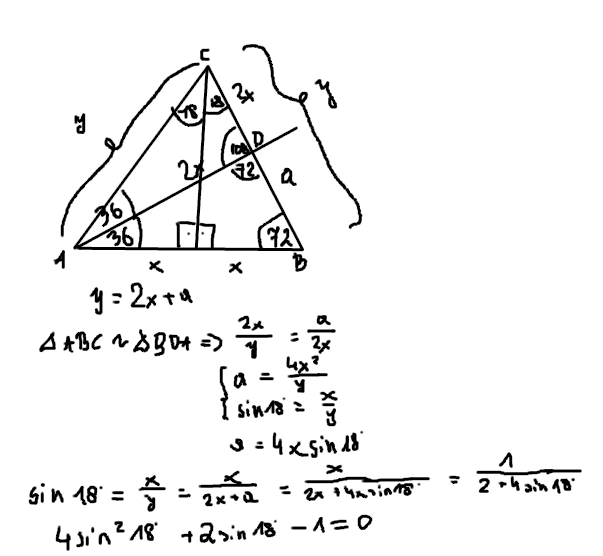 C
y
18 18 2x y
D
108
2x 72 a
36
36 72
A x x B
y = 2x + a
Δ ABC ~ Δ BDA => 2x/y = a/2x
{ a = 4x²/y
{ sin 18° = x/y
a = 4x sin 18°
sin 18° = x/y = x/(2x+a) = x/(2x + 4x sin 18°) = 1/(2 + 4 sin 18°)
4 sin² 18° + 2 sin 18° - 1 = 0